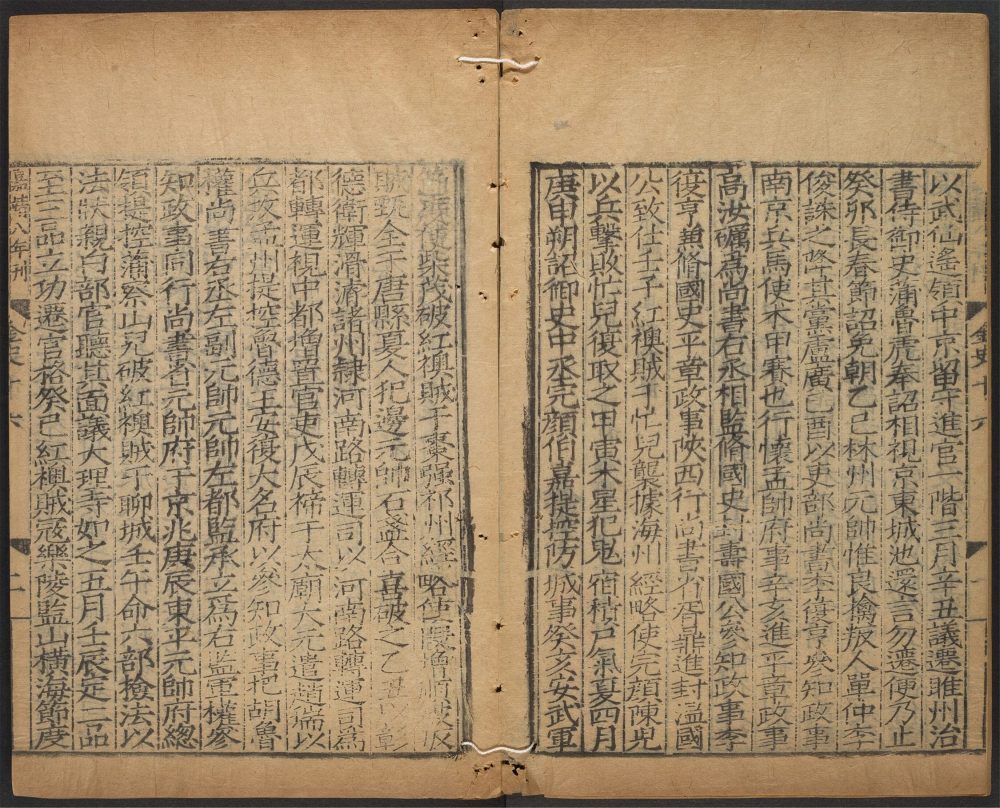 以武仙遙領中京留守進官一階三月辛丑議遷睢州治
書侍御史蒲魯虎奉詔相視京東城池還言勿遷便乃止
癸卯長春節詔免朝乙巳林州元帥惟良擒叛人單仲李
俊誅之降其黨盧廣己酉以吏部尚書李復亨參知政事
南京兵馬使术甲賽也行懷孟帥府事辛亥進平章政事
高汝礪為尚書右丞相監脩國史封壽國公參知政事李
復亨兼脩國史平章政事陝西行尚書省胥鼎進封溫國
公致仕壬子紅襖賊于忙兒襲據海州經略使完顏陳兒
以兵擊敗忙兒復取之甲寅木星犯鬼宿積尸氣夏四月
庚申朔詔御史中丞完顏伯嘉提控防城事癸亥安武軍
節度使柴茂破紅襖賊于棗强祁州經略使
甄全于唐縣夏人犯邊元帥石盞合喜破之乙 以彰
德衛輝滑濬諸州隸河南路轉運司以河南路轉運司為
都轉運視中都增置官吏戊辰禘于太廟大元遣趙瑞以
兵拔孟州提控魯德王安復大名府以參知政事把胡魯
權尚書右丞左副元帥元帥左都監承立為右監軍權參
知政事同行尚書省元帥府于京兆庚辰東平元帥府總
領提控蒲察山兒破紅襖賊于聊城壬午命六部檢法以
法狀親白部官聽其面議大理寺如之五月壬辰定二品
至三品立功遷官格癸巳紅襖賊寇樂陵監山橫海節度
嘉靖八年刊
金史十六
二